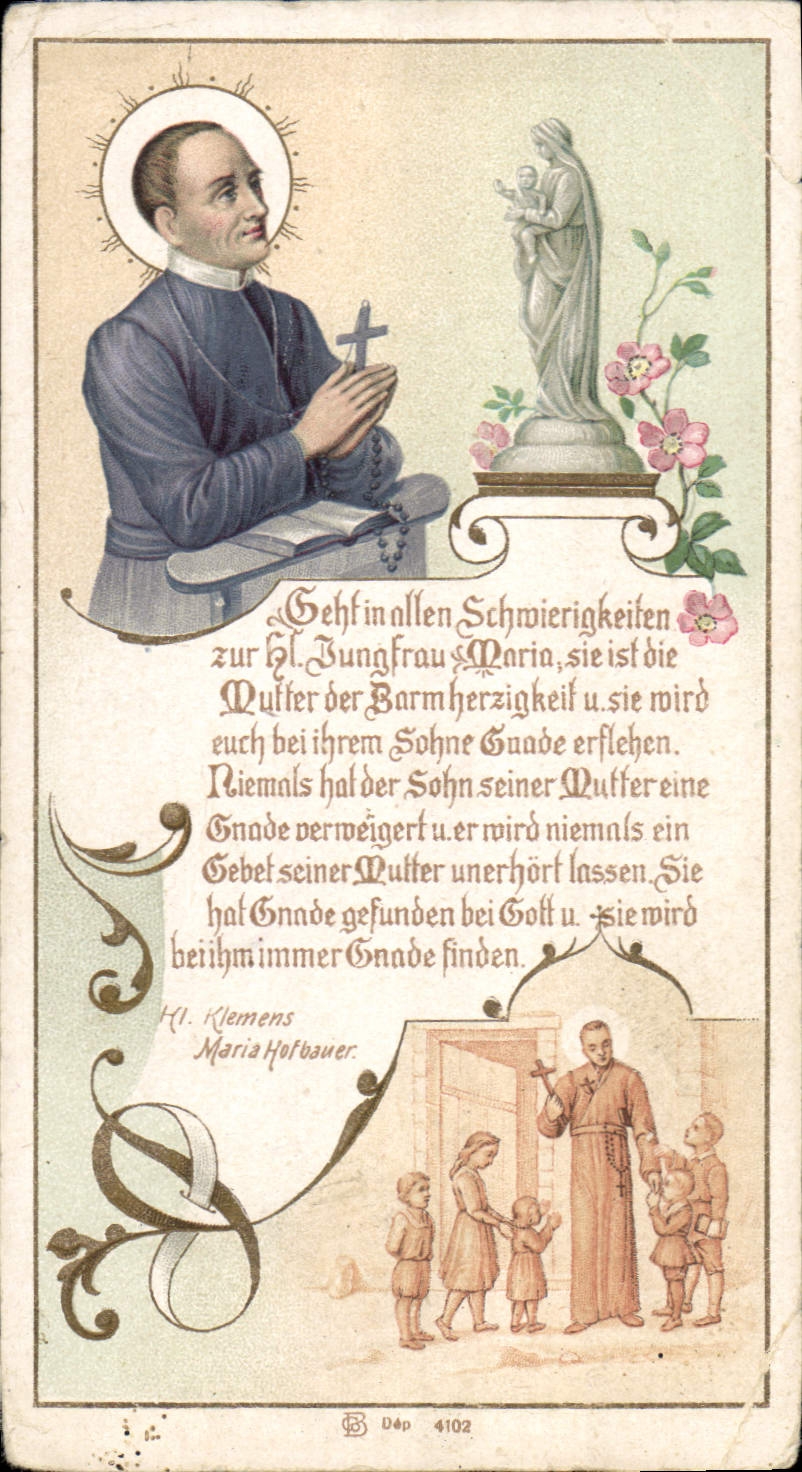 Geht in allen Schwierigkeiten
zur Hl. Jungfrau Maria, sie ist die
Mutter der Barmherzigkeit u. sie wird
euch bei ihrem Sohne Gnade erflehen.
Niemals hat der Sohn seiner Mutter eine
Gnade verweigert u. er wird niemals ein
Gebet seiner Mutter unerhört lassen. Sie
hat Gnade gefunden bei Gott u. sie wird
bei ihm immer Gnade finden.
Hl. Klemens
Maria Hofbauer.
Dép 4102